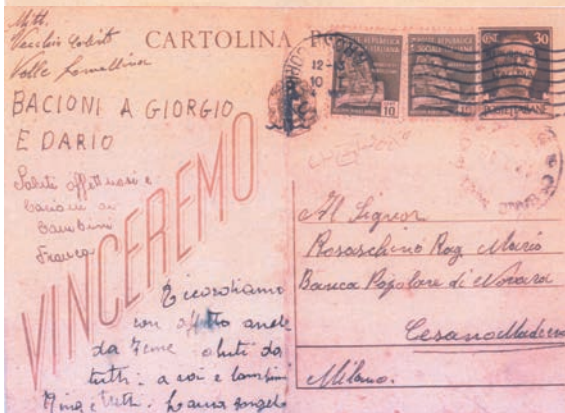 Mitt.
Vecchio
Valle Lomellina
CARTOLINA
BACIONI A GIORGIO
E DARIO
Saluti affettuosi e
bacioni ai
bambini
Franca
VINCEREMO
Ricordiamo
con affetto anche
da Teme saluti da
tutti: a voi e bambini
30
12-13
10
10
10
Al Signor
Rosaschino Rag. Mario
Banca Popolare di Novara
Cesano Maderno
Milano.